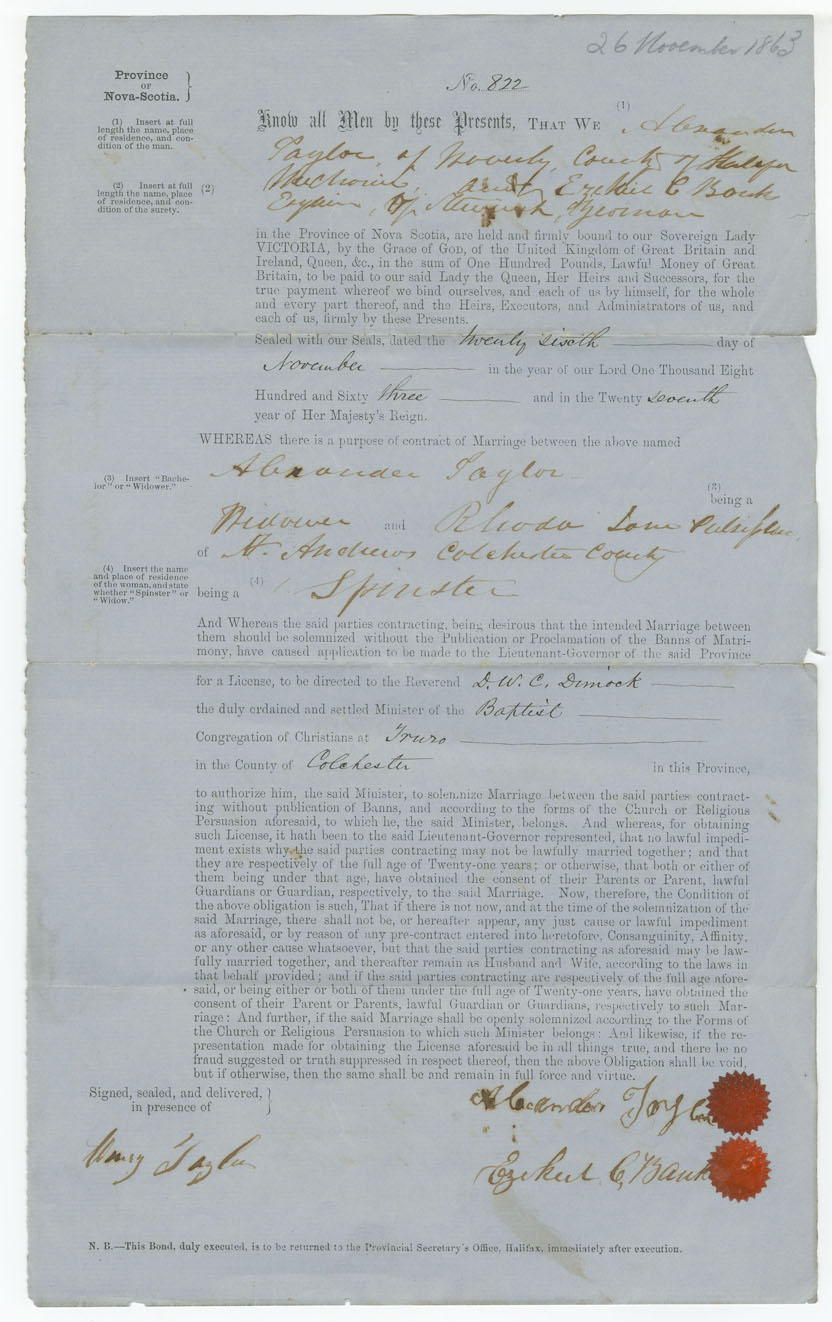 26 November 1863
Province
OF
Nova-Scotia.
No. 822
(1) Insert at full
length the name, place
of residence, and con-
dition of the man.
(1)
Know all Men by these Presents, THAT WE Alexander
Taylor, of Waverly, County of Halifax
(2) Insert at full
length the name, place
of residence, and con-
dition of the surety.
(2)
Mechanic, and Ezekiel C Bank
of Yeoman
in the Province of Nova Scotia, are held and firmly bound to our Sovereign Lady
VICTORIA, by the Grace of GOD, of the United Kingdom of Great Britain and
Ireland, Queen, &c., in the sum of One Hundred Pounds, Lawful Money of Great
Britain, to be paid to our said Lady the Queen, Her Heirs and Successors, for the
true payment whereof we bind ourselves, and each of us by himself, for the whole
and every part thereof, and the Heirs, Executors, and Administrators of us, and
each of us, firmly by these Presents.
Sealed with our Seals, dated the twenty sixth day of
November in the year of our Lord One Thousand Eight
Hundred and Sixty three and in the Twenty seventh
year of Her Majesty's Reign.
WHEREAS there is a purpose of contract of Marriage between the above named
Alexander Taylor
(3) Insert "Bache-
lor" or "Widower."
(3)
being a
Widower and Rhoda Jane
of St. Andrews Colchester County
(4) Insert the name
and place of residence
of the woman, and state
whether "Spinster" or
"Widow."
being a (4) Spinster
And Whereas the said parties contracting, being desirous that the intended Marriage between
them should be solemnized without the Publication or Proclamation of the Banns of Matri-
mony, have caused application to be made to the Lieutenant-Governor of the said Province
for a License, to be directed to the Reverend D. W. C. Dimock
the duly ordained and settled Minister of the Baptist
Congregation of Christians at Truro
in the County of Colchester in this Province,
to authorize him, the said Minister, to solemnize Marriage between the said parties contract-
ing without publication of Banns, and according to the forms of the Church or Religious
Persuasion aforesaid, to which he, the said Minister, belongs. And whereas, for obtaining
such License, it hath been to the said Lieutenant-Governor represented, that no lawful impedi-
ment exists why the said parties contracting may not be lawfully married together; and that
they are respectively of the full age of Twenty-one years; or otherwise, that both or either of
them being under that age, have obtained the consent of their Parents or Parent, lawful
Guardians or Guardian, respectively, to the said Marriage. Now, therefore, the Condition of
the above obligation is such, That if there is not now, and at the time of the solemnization of the
said Marriage, there shall not be, or hereafter appear, any just cause or lawful impediment
as aforesaid, or by reason of any pre-contract entered into heretofore, Consanguinity, Affinity,
or any other cause whatsoever, but that the said parties contracting as aforesaid may be law-
fully married together, and thereafter remain as Husband and Wife, according to the laws in
that behalf provided; and if the said parties contracting are respectively of the full age afore-
said, or being either or both of them under the full age of Twenty-one years, have obtained the
consent of their Parent or Parents, lawful Guardian or Guardians, respectively to such Mar-
riage: And further, if the said Marriage shall be openly solemnized according to the Forms of
the Church or Religious Persuasion to which such Minister belongs: And likewise, if the re-
presentation made for obtaining the License aforesaid be in all things true, and there be no
fraud suggested or truth suppressed in respect thereof, then the above Obligation shall be void,
but if otherwise, then the same shall be and remain in full force and virtue.
Signed, sealed, and delivered,
in presence of
Alexander Taylor
Henry Taylor
Ezekiel C, Bank
N. B.—This Bond, duly executed, is to be returned to the Provincial Secretary's Office, Halifax, immediately after execution.